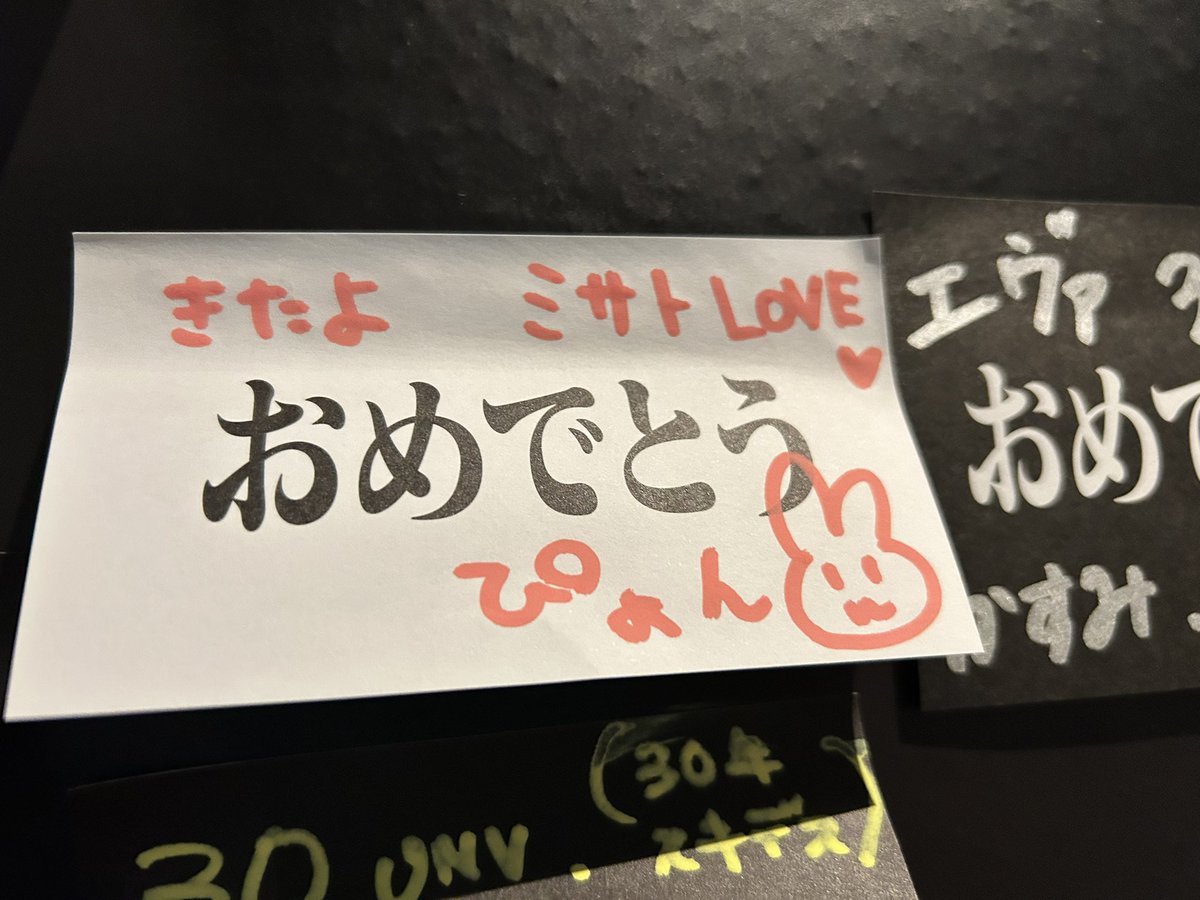 きたよ ミサトLOVE♥
おめでとう
ぴょん
エヴァ
おめで
かすみ
(30年
スキデス)
30 UNV.